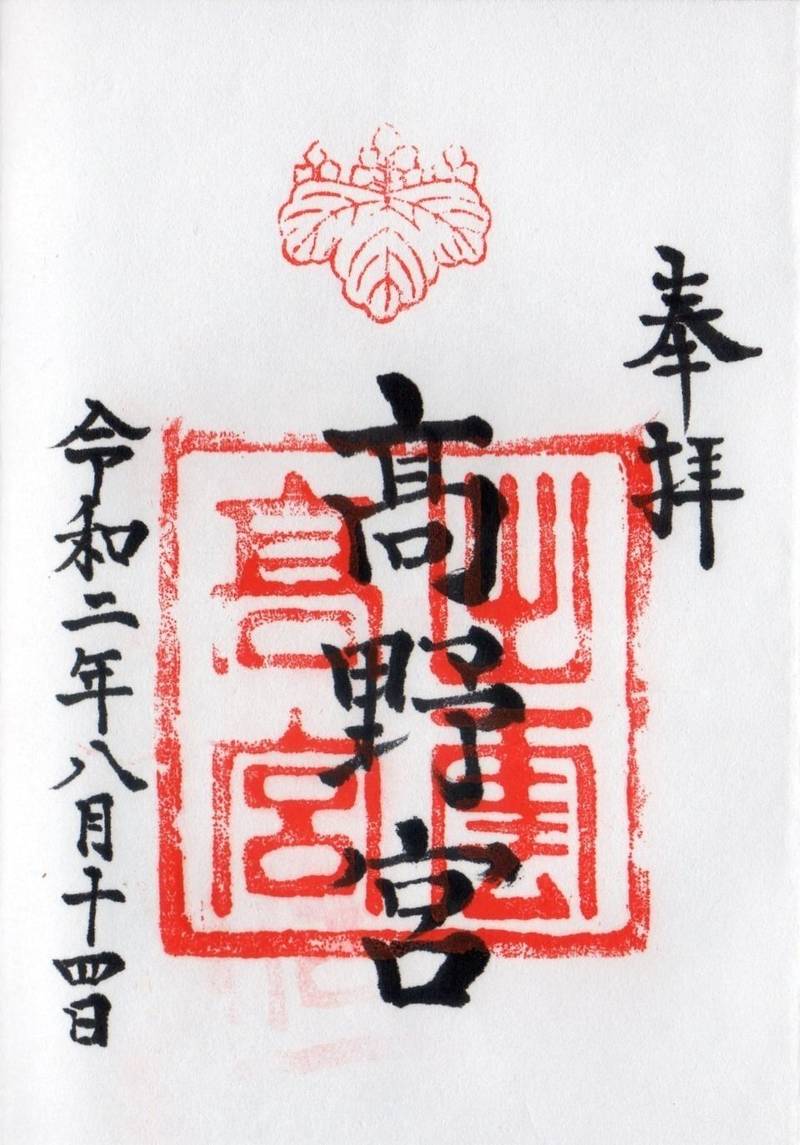 奉拝
髙野宮
出雲
高宮
令和二年八月十四日